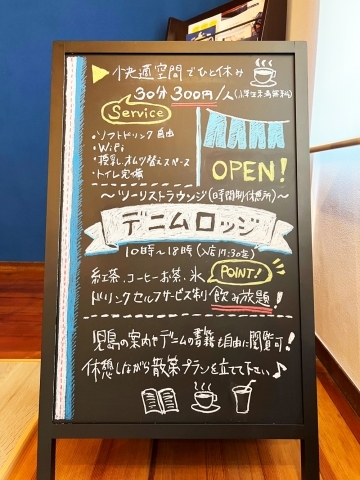 快適空間でひと休み
30分 300円/人(小学生未満無料)
Service
・ソフトドリンク自由
・Wifi
・授乳、オムツ替えスペース
・トイレ完備
OPEN!
〜ツーリストラウンジ(時間制休憩所)〜
デニムロッジ
10時〜18時(入店17:30迄)
紅茶、コーヒーお茶、氷
POINT!
ドリンクセルフサービス制/飲み放題!
児島の案内やデニムの書籍も自由に閲覧可!
休憩しながら散策プランを立てて下さい♪